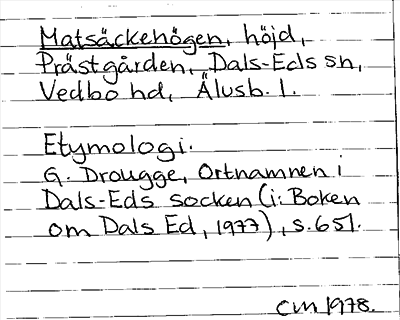 Matsäckehögen, höjd,
Prästgården, Dals-Eds sn,
Vedbo hd, Älvsb. l.
Etymologi.
G. Drougge, Ortnamnen i
Dals-Eds socken (i: Boken
om Dals Ed, 1977), s. 651.
CM 1978.